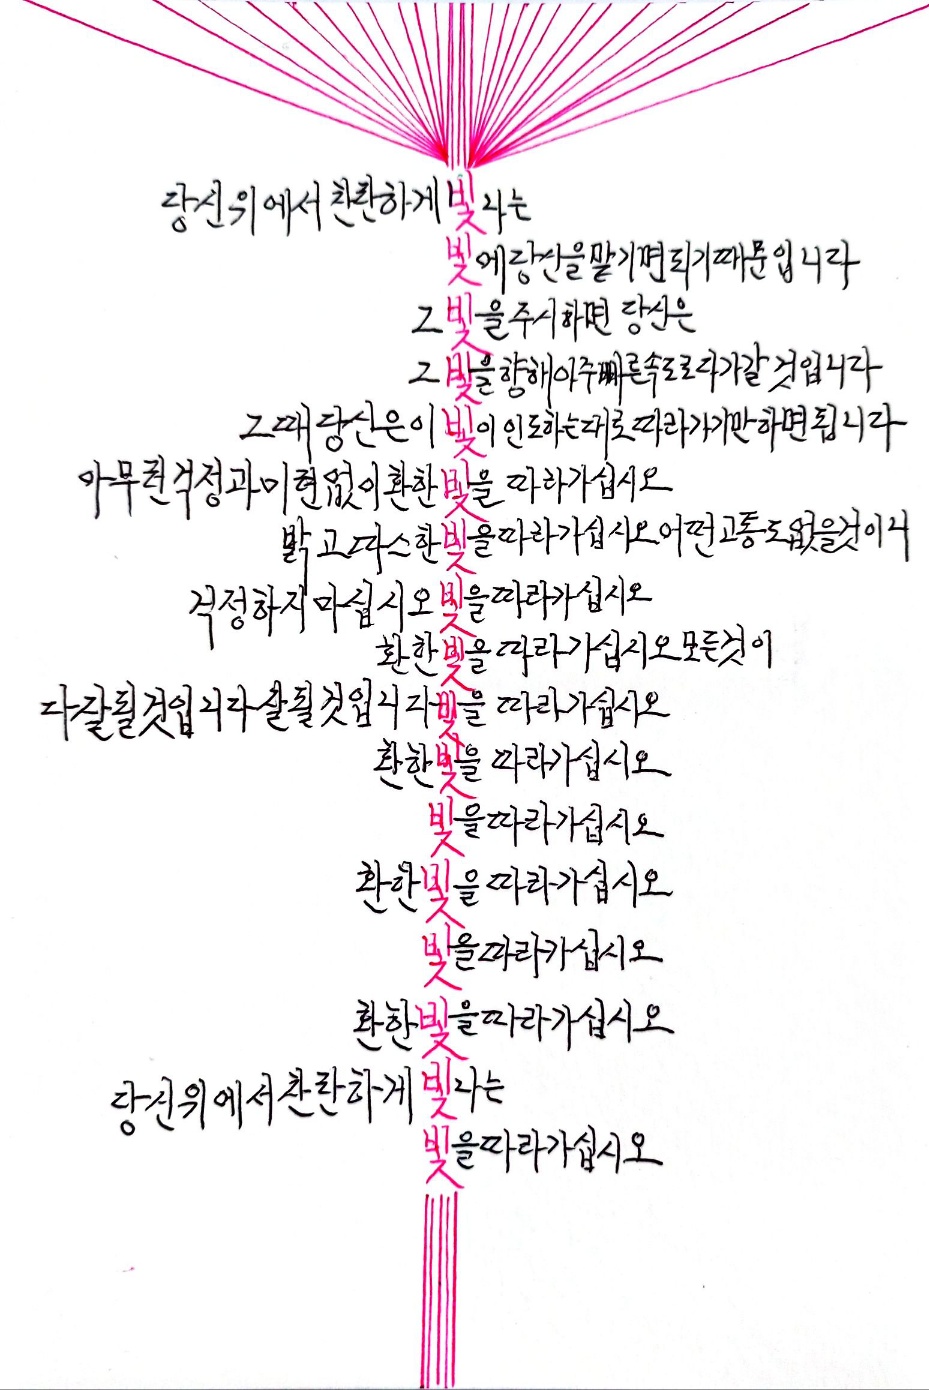 당신위에서 찬란하게 빛나는
빛에 당신을 맡기면 되기 때문입니다
그 빛을 주시하면 당신은
그 빛을 향해 아주 빠른 속도로 다가갈 것입니다
그때 당신은 이 빛이 인도하는대로 따라가기만 하면 됩니다
아무런 걱정과 미련없이 환한 빛을 따라가십시오
밝고 따스한 빛을 따라가십시오 어떤 고통도 없을것이니
걱정하지 마십시오 빛을 따라가십시오
환한 빛을 따라가십시오 모든것이
다 잘될것입니다 잘될것입니다 빛을 따라가십시오
환한 빛을 따라가십시오
빛을 따라가십시오
환한 빛을 따라가십시오
빛을 따라가십시오
환한 빛을 따라가십시오
당신위에서 찬란하게 빛나는
빛을 따라가십시오